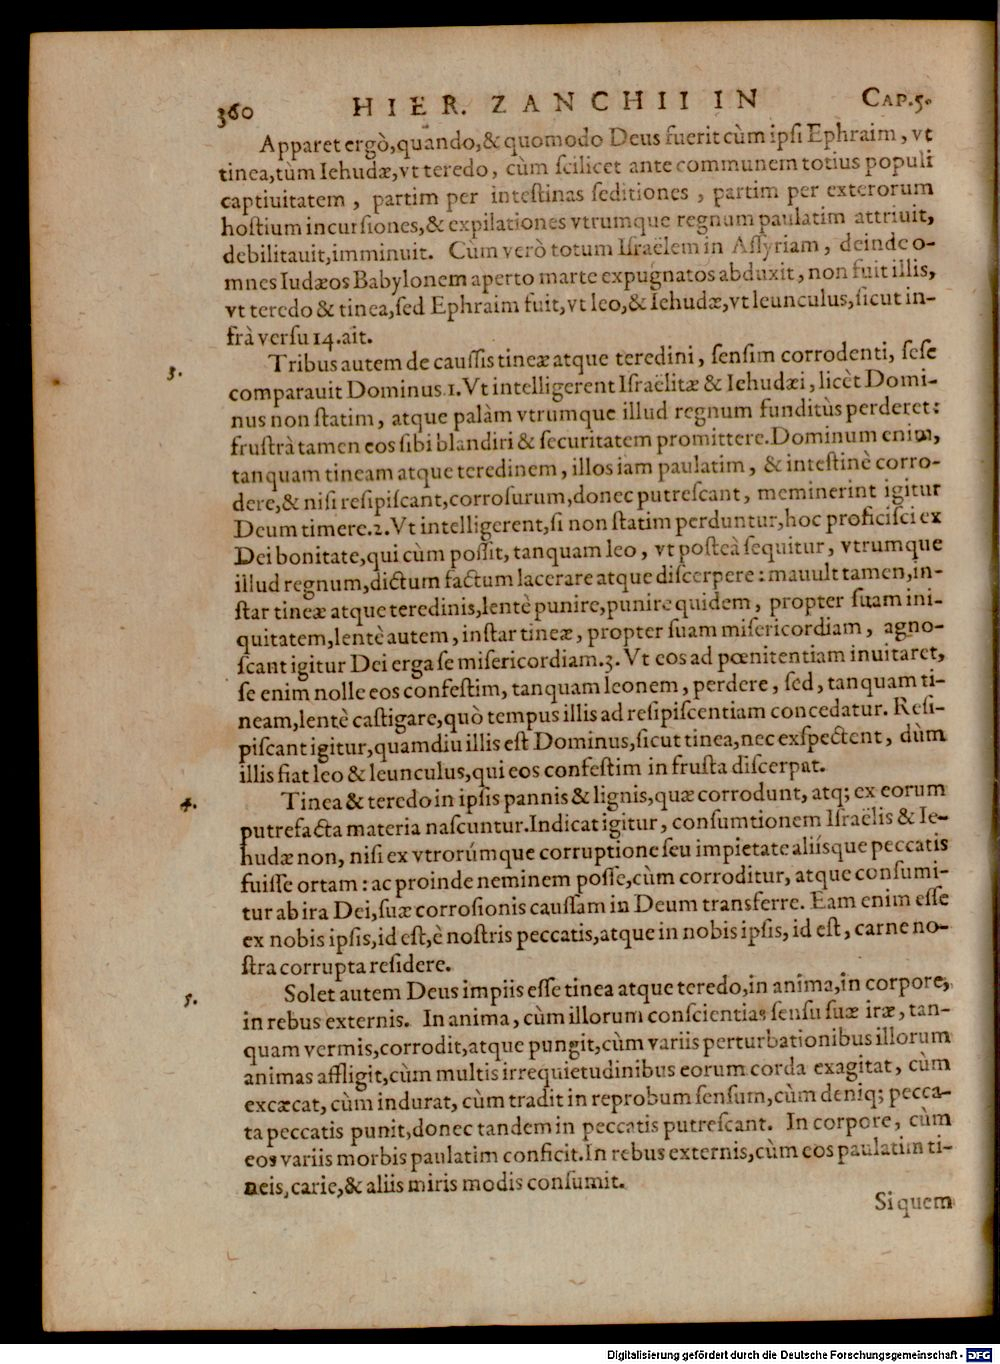 360 HIER. ZANCHII IN CAP.5.
Apparet ergò,quando,&quomodo Deus fuerit cùm ipſi Ephraim, vt
tinea,tùm Iehudæ,vt teredo, cùm ſcilicet ante communem totius populi
captiuitatem, partim per inteſtinas ſeditiones, partim per exterorum
hoſtium incurſiones,& expilationes vtrumque regnum paulatim attriuit,
debilitauit,imminuit. Cùm verò totum Iſraëlem in Aſſyriam, deinde o-
mnes Iudæos Babylonem aperto marte expugnatos abduxit, non fuit illis,
vt teredo & tinea,ſed Ephraim fuit,vt leo,& Iehudæ,vt leunculus,ſicut in-
frà verſu 14.ait.
3. Tribus autem de cauſſis tineæ atque teredini, ſenſim corrodenti, ſeſe
comparauit Dominus.1.Vt intelligerent Iſraëlitæ & Iehudæi, licèt Domi-
nus non ſtatim, atque palàm vtrumque illud regnum funditùs perderet:
fruſtrà tamen eos ſibi blandiri & ſecuritatem promittere.Dominum enim,
tanquam tineam atque teredinem, illos iam paulatim, & inteſtinè corro-
dere,& niſi reſipiſcant,corroſurum,donec putreſcant, meminerint igitur
Deum timere.2.Vt intelligerent,ſi non ſtatim perduntur,hoc proficiſci ex
Dei bonitate,qui cùm poſſit, tanquam leo, vt poſteà ſequitur, vtrumque
illud regnum,dictum factum lacerare atque diſcerpere: mauult tamen,in-
ſtar tineæ atque teredinis,lentè punire,punire quidem, propter ſuam ini-
quitatem,lentè autem, inſtar tineæ, propter ſuam miſericordiam, agno-
ſcant igitur Dei erga ſe miſericordiam.3. Vt eos ad pœnitentiam inuitaret,
ſe enim nolle eos confeſtim, tanquam leonem, perdere, ſed, tanquam ti-
neam,lentè caſtigare,quò tempus illis ad reſipiſcentiam concedatur. Reſi-
piſcant igitur,quamdiu illis eſt Dominus,ſicut tinea,nec exſpectent, dùm
illis fiat leo & leunculus,qui eos confeſtim in fruſta diſcerpat.
4. Tinea & teredo in ipſis pannis & lignis,quæ corrodunt, atq; ex eorum
putrefacta materia naſcuntur.Indicat igitur, conſumtionem Iſraëlis & Ie-
hudæ non, niſi ex vtrorúmque corruptione ſeu impietate aliíſque peccatis
fuiſſe ortam: ac proinde neminem poſſe,cùm corroditur, atque conſumi-
tur ab ira Dei,ſuæ corroſionis cauſſam in Deum transferre. Eam enim eſſe
ex nobis ipſis,id eſt,è noſtris peccatis,atque in nobis ipſis, id eſt, carne no-
ſtra corrupta reſidere.
5. Solet autem Deus impiis eſſe tinea atque teredo,in anima,in corpore,
in rebus externis. In anima, cùm illorum conſcientias ſenſu ſuæ iræ, tan-
quam vermis,corrodit,atque pungit,cùm variis perturbationibus illorum
animas affligit,cùm multis irrequietudinibus eorum corda exagitat, cùm
excæcat, cùm indurat, cùm tradit in reprobum ſenſum,cùm deniq; pecca-
ta peccatis punit,donec tandem in peccatis putreſcant. In corpore, cùm
eos variis morbis paulatim conficit.In rebus externis,cùm eos paulatim ti-
neis, carie,& aliis miris modis conſumit.
Si quem
Digitalisierung gefördert durch die Deutsche Forschungsgemeinschaft - DFG